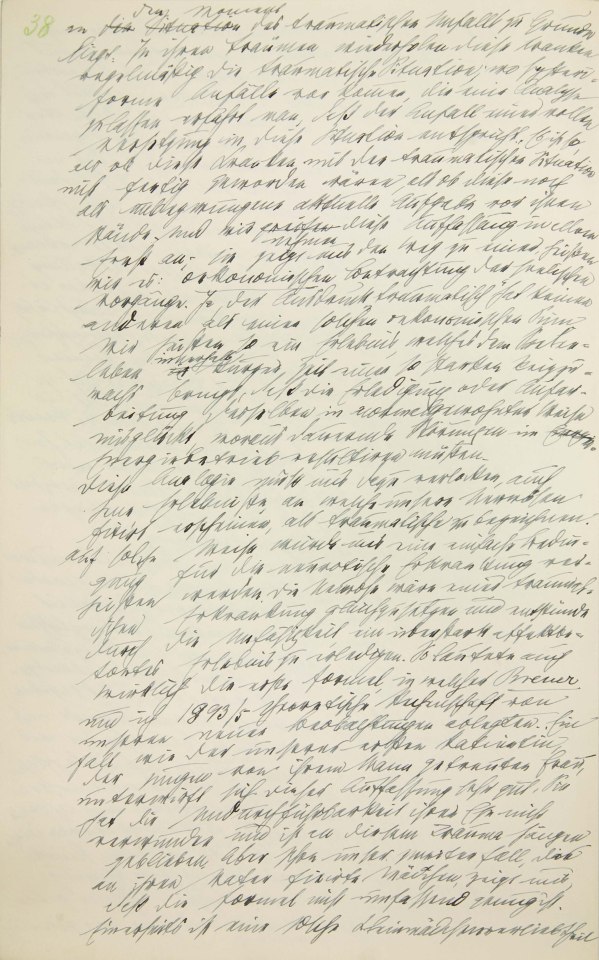 38
den Moment
an die Situation des traumatischen Unfalls zu Grunde
liegt. In ihren Träumen wiederholen diese Kranken
regelmäßig die traumatische Situation; wo hysteri-
forme Anfälle vorkomen, die eine Analyse
zulassen erfährt man, daß der Anfall einer vollen
Versetzung in diese Situation entspricht. Es ist so
als ob diese Kranken mit der traumatischen Situation
nicht fertig geworden wären, als ob diese noch
als unbezwungene aktuelle Aufgabe vor ihnen
stände, und wir diese Auffassung in allem
nehmen
Ernst an; sie zeigt uns den Weg zu einer, heißen
wir es: oekonomischen Betrachtung der seelischen
Vorgänge. Ja der Ausdruck traumatisch hat keinen
anderen als einen solchen oekonomischen Sinn
Wir heißen so ein Erlebnis, welches dem Seelen-
leben innerhalb kurzer Zeit einen so starken Reizzu-
wachs bringt, daß die Erledigung oder Aufar-
beitung desselben in normalgewohnter Weise
mißglückt, woraus dauernde Störungen im
Energiebetrieb resultiren müssen.
Diese Analogie muß uns dazu verlocken, auch
jene Erlebnisse an welche unsere Nervösen
fixirt erscheinen, als traumatische zu bezeichnen.
Auf solche Weise würde uns eine einfache Bedin-
gung für die neurotische Erkrankung ver-
heißen werden. Die Neurose wäre einer traumat-
ischen Erkrankung gleichzusetzen und entstünde
durch die Unfähigkeit ein überstark affektbe-
tontes Erlebnis zu erledigen. So lautete auch
wirklich die erste Formel, in welcher Breuer
und ich 1893/5 theoretische Rechenschaft von
unseren neuen Beobachtungen ablegten. Ein
Fall wie der unserer ersten Patientin,
der jungen von ihrem Mann getrennten Frau,
unterwirft sich dieser Auffassung sehr gut. Sie
hat die Undurchführbarkeit ihrer Ehe nicht
verwunden und ist an diesem Trauma hängen
geblieben. Aber schon unser zweiter Fall, das
an ihren Vater fixirte Mädchen, zeigt uns
daß die Formel nicht umfassend genug ist.
Einerseits ist eine solche Kleinmädchenverliebtheit